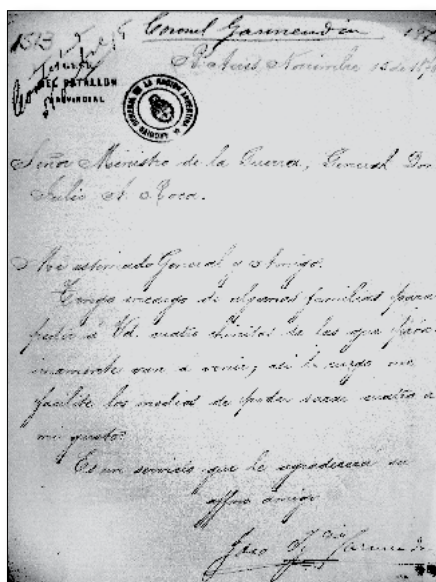 1513
Coronel Garmendia 187
JEFE
DEL BATALLON
PROVINCIAL
ARCHIVO GENERAL DE LA NACION ARGENTINA
Bs Aires, Noviembre 12 de 187
Señor Ministro de la Guerra, General Don
Julio A. Roca.
Mi estimado General y Amigo:
Tengo encargo de algunas familias para
pedir á Vd. cuatro chinitos de los que próxi-
mamente van a venir; asi le ruego me
facilite los medios de poder sacar cuatro a
mi gusto.
Es un servicio que le agradecerá su
affmo amigo
José Garmendia